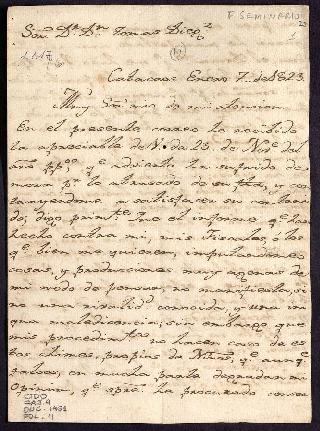 F. SEMINARIO
Sor. Dr. Dn. Tomas Dieg
Cabacoas Enero 7 de 1823.
Muy Sor mio de mi atencion
En el presente correo he recibido
la apreciable de V. de 23. de Nove. del
año pp.o qe. advierto ha sufrido de
mora pr. lo atrasado de su fha, y con
trayendome a satisfacer su conteni
do, digo primte. Que el informe qe. han
hecho contra mi, mis Fiscales, o los
qe. bien me quieren, imputandome
cosas, y producciones muy agenas de
mi modo de pensar, no manifiesta, si
no una rivalidad conocida, y una in
qua maledicencia; sin embargo que
mis procedimtos. no hacen caso de es
tos chismes, propios de qe. aunqe.
falsos, en mucha parte degradan mi
Opinion, qe. spre. he procurado conser
CIDO
CAJ. 9
DOC. 1451
FOL. 11